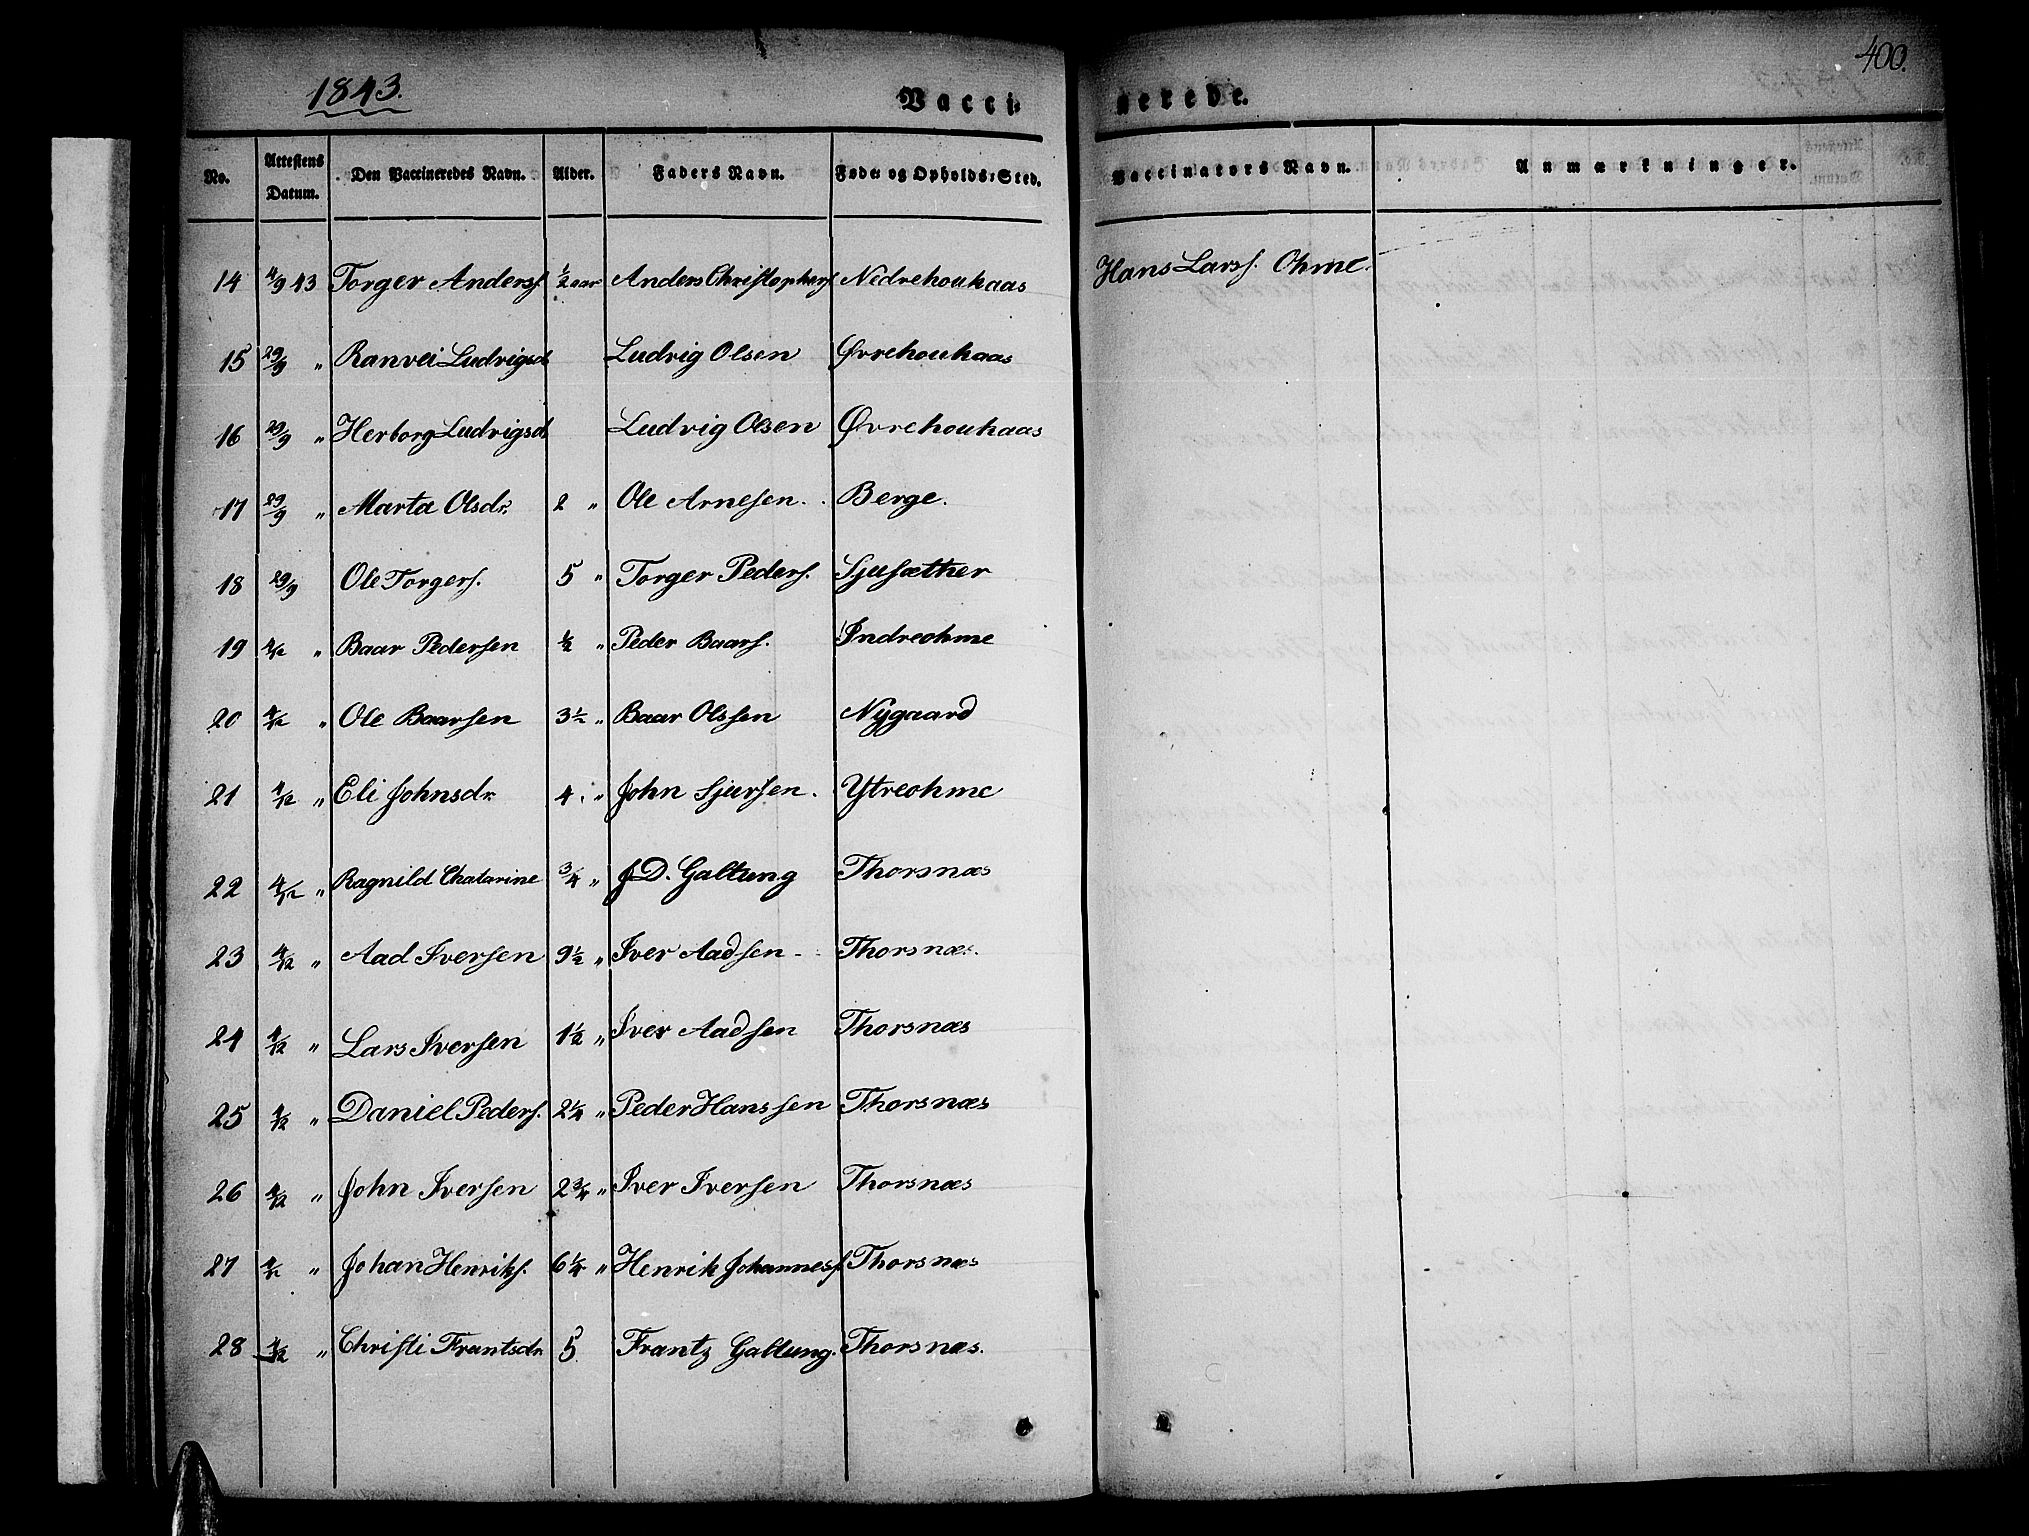 1843.
Vacci-
nerede.
400.
No. Attestens Datum. Den Vaccineredes Navn. Alder. Faders Navn. Føde- og Opholds-Sted. Vaccinators Navn. Anmærkninger.
14 4/9 43 Torger Anders. 1/2 aar Anders Christophers. Nedrehoukaas Hans Lars. Ohme.
15 29/9 " Ranvei Ludvigsd Ludvig Olsen Øvrehoukaas
16 29/9 " Herborg Ludvigsd Ludvig Olsen Øvrehoukaas
17 29/9 " Marta Olsdr. 2 " Ole Arnesen. Berge.
18 29/9 Ole Torgers. 5 " Torger Peders. Sjusæther
19 4/12 " Baar Pedersen 1/2 " Peder Baars. Indreohme
20 4/12 " Ole Baarsen 3 1/2 " Baar Olssen Nygaard
21 4/12 " Eli Johnsdr. 4 " John Sjursen. Ytreohme
22 4/12 " Ragnild Chatarine 3/4 " J D. Galtung Thorsnæs
23 4/12 " Aad Iversen 9 1/2 " Iver Aadsen Thorsnæs.
24 4/12 " Lars Iversen 1 1/2 " Iver Aadsen Thorsnæs
25 4/12 " Daniel Peders. 2 1/4 " Peder Hanssen Thorsnæs
26 4/12 " John Iversen 2 3/4 " Iver Iversen Thorsnæs
27 4/12 " Johan Henriks. 6 1/4 " Henrik Johanness. Thorsnæs
28 4/12 " Christi Frantsdr. 5 Frantz Galtung. Thorsnæs.